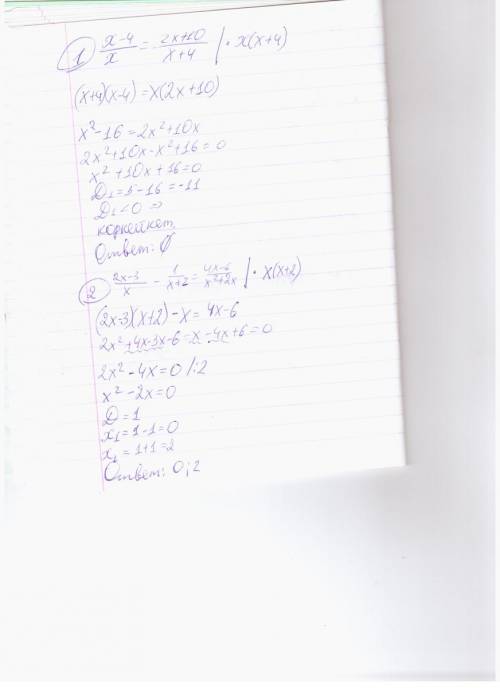 1 (x-4)/x = (2x+10)/(x+4) | · x(x+4)
(x+4)(x-4)=x(2x+10)
x²-16=2x²+10x
2x²+10x-x²+16=0
x²+10x+16=0
D₁=5-16=-11
D₁<0 ⇒
корней нет.
Ответ: ∅
2 (2x-3)/x - 1/(x+2) = (4x-6)/(x²+2x) | · x(x+2)
(2x-3)(x+2)-x=4x-6
2x²+4x-3x-6-x-4x+6=0
2x²-4x=0 /:2
x²-2x=0
D=1
x₁=1-1=0
x₂=1+1=2
Ответ: 0;2